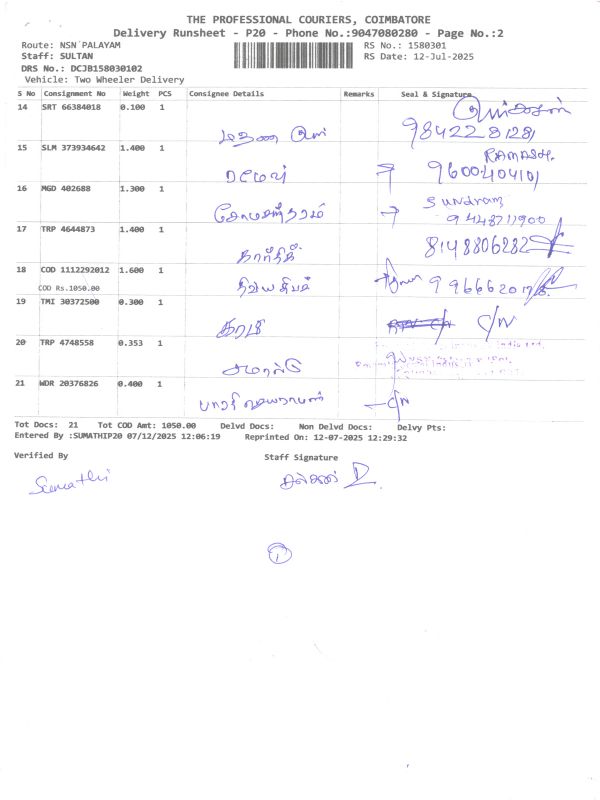 THE PROFESSIONAL COURIERS, COIMBATORE
Delivery Runsheet - P20 - Phone No.:9047080280 - Page No.:2
Route: NSN PALAYAM RS No.: 1580301
Staff: SULTAN RS Date: 12-Jul-2025
DRS No.: DCJB158030102
Vehicle: Two Wheeler Delivery
S No Consignment No Weight PCS Consignee Details Remarks Seal & Signature
14 SRT 66384018 0.100 1
9842281281
15 SLM 373934642 1.400 1 RAMASH.
ரமேஷ் 9600404101
16 MGD 402688 1.300 1 Sundram
சோமசுந்தரம் 9448711900
17 TRP 4644873 1.400 1
கார்த்திக் 8148806282
18 COD 1112292012 1.600 1
COD Rs.1050.00
19 TMI 30372500 0.300 1
C/N
20 TRP 4748558 0.353 1
21 WDR 20376826 0.400 1
C/N
Tot Docs: 21 Tot COD Amt: 1050.00 Delvd Docs: Non Delvd Docs: Delvy Pts:
Entered By :SUMATHIP20 07/12/2025 12:06:19 Reprinted On: 12-07-2025 12:29:32
Verified By Staff Signature
Sumathi
1